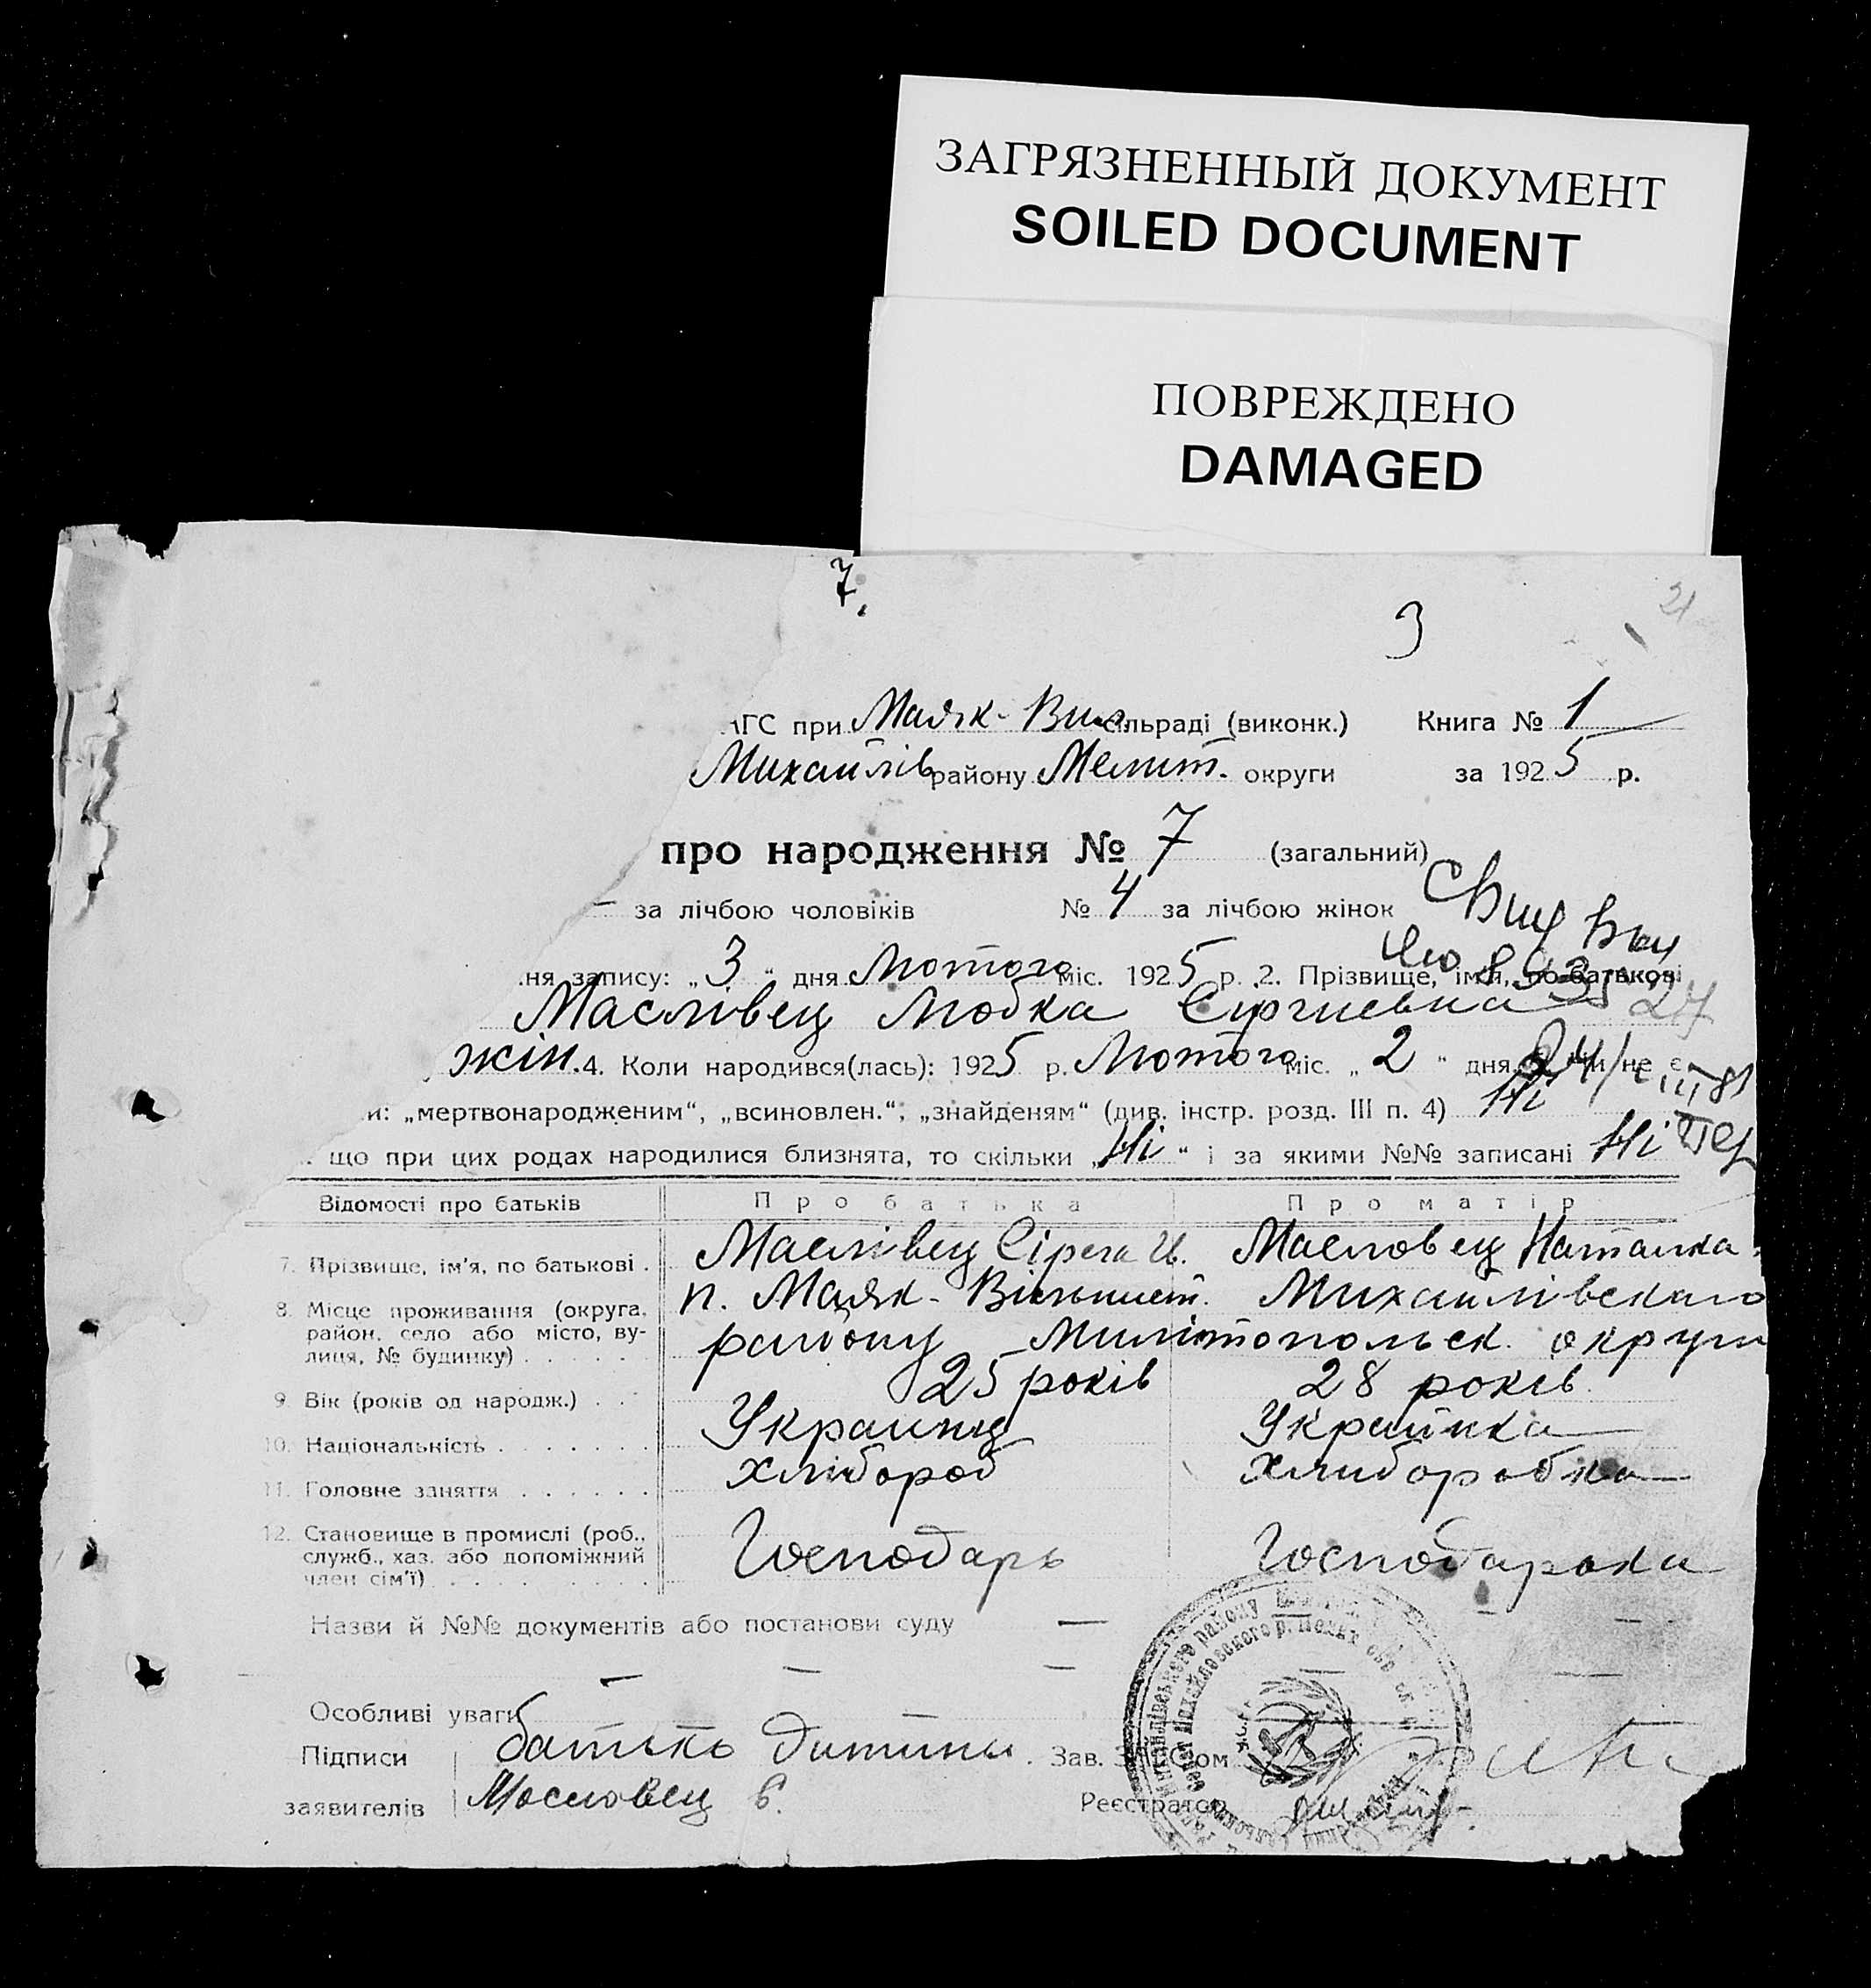 ЗАГРЯЗНЕННЫЙ ДОКУМЕНТ
SOILED DOCUMENT
ПОВРЕЖДЕНО
DAMAGED
7.
3
21
АГС при Маяк- Вил сільраді (виконк.) Книга № 1
Михайлів району Мелит. округи за 1925 р.
про народження № 7 (загальний)
— за лічбою чоловіків № 4 за лічбою жінок
ня запису: „3“ дня Лютого міс. 1925 р. 2. Прізвище, ім'я, по батькові
Маслівец Любка Сіргиевна 27
жін. 4. Коли народився(лась): 1925 р. Лютого міс. „2“ дня чи не є
и: „мертвонародженим“, „всиновлен.“, „знайденям“ (див. інстр. розд. III п. 4) Ні
що при цих родах народилися близнята, то скільки „Ні“ і за якими №№ записані Ні
Відомості про батьків Про батька Про матір
7. Прізвище, ім'я, по батькові . Маслівец Сірега И. Масловец Наталка.
8. Місце проживання (округа, район, село або місто, вулиця, № будинку) п. Маяк- Вильнист. Михаилівскаго
району Милітопольск. округи
9. Вік (років од народж.) 25 років 28 років.
10. Національність Украинец Украинка
11. Головне заняття хлібороб хлиборобка
12. Становище в промислі (роб.,
служб., хаз. або допоміжний
член сім'ї) Господарь Господарька
Назви й №№ документів або постанови суду —
Особливі уваги
Підписи батько дитини. Зав. ЗАГСом
заявителів Масловец С. Реєстратор